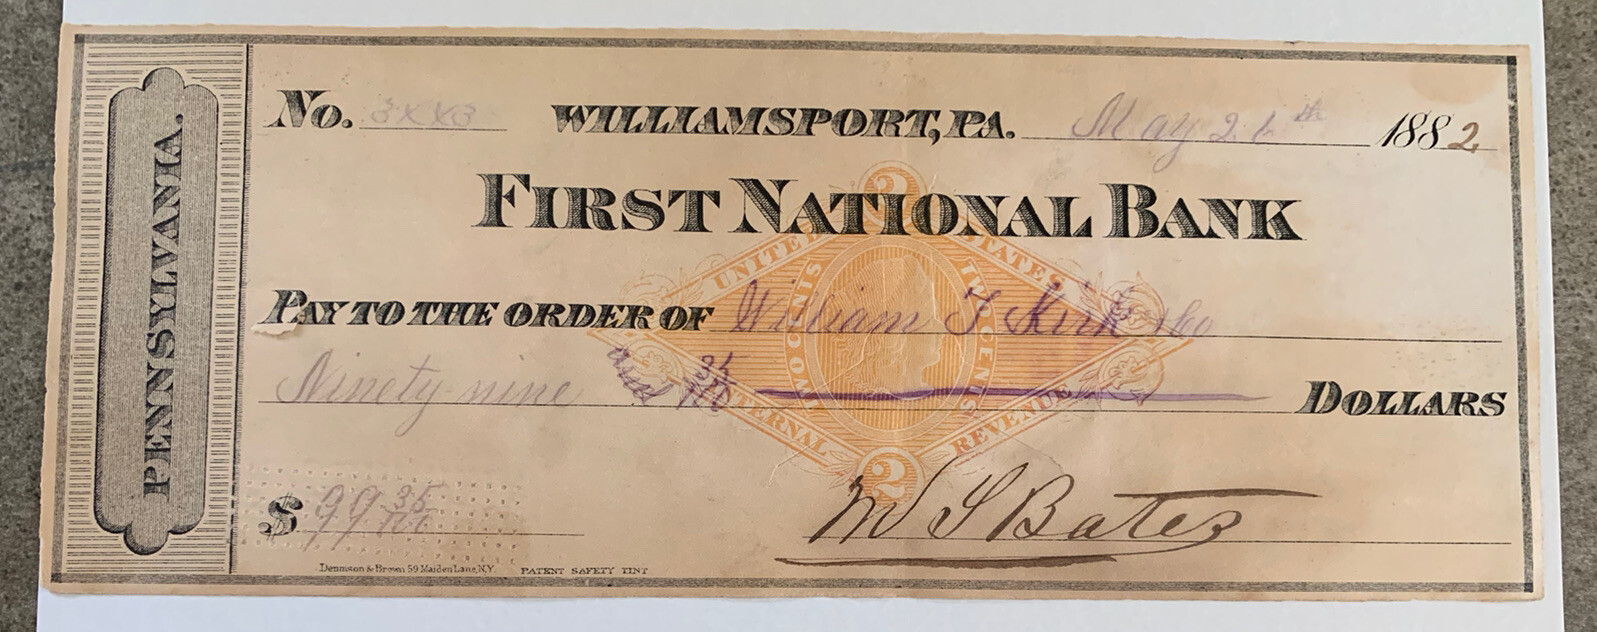 PENNSYLVANIA.
No. WILLIAMSPORT, PA. May 26th 1882.
FIRST NATIONAL BANK
2
UNITED STATES
TWO CENTS TWO CENTS
PAY TO THE ORDER OF William F Kirk & Co
Ninety-nine and 35/100 DOLLARS
INTERNAL REVENUE
2
$ 99 35/100
M S Bates
Dennison & Brown 59 Maiden Lane, N.Y. PATENT SAFETY TINT